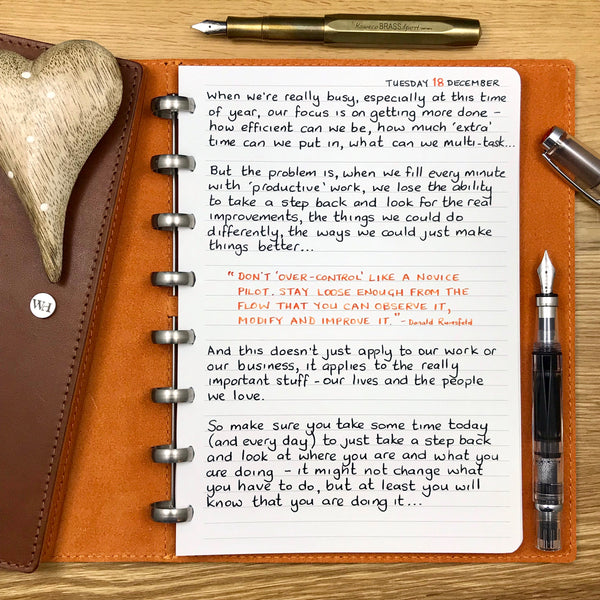 Kaweco BRASS Sport
TUESDAY 18 DECEMBER
When we're really busy, especially at this time
of year, our focus is on getting more done –
how efficient can we be, how much 'extra'
time can we put in, what can we multi-task...
But the problem is, when we fill every minute
with 'productive' work, we lose the ability
to take a step back and look for the real
improvements, the things we could do
differently, the ways we could just make
things better...
"DON'T 'OVER-CONTROL' LIKE A NOVICE
PILOT. STAY LOOSE ENOUGH FROM THE
FLOW THAT YOU CAN OBSERVE IT,
MODIFY AND IMPROVE IT." - Donald Rumsfeld
And this doesn't just apply to our work or
our business, it applies to the really
important stuff - our lives and the people
we love.
So make sure you take some time today
(and every day) to just take a step back
and look at where you are and what you
are doing - it might not change what
you have to do, but at least you will
know that you are doing it...
WH